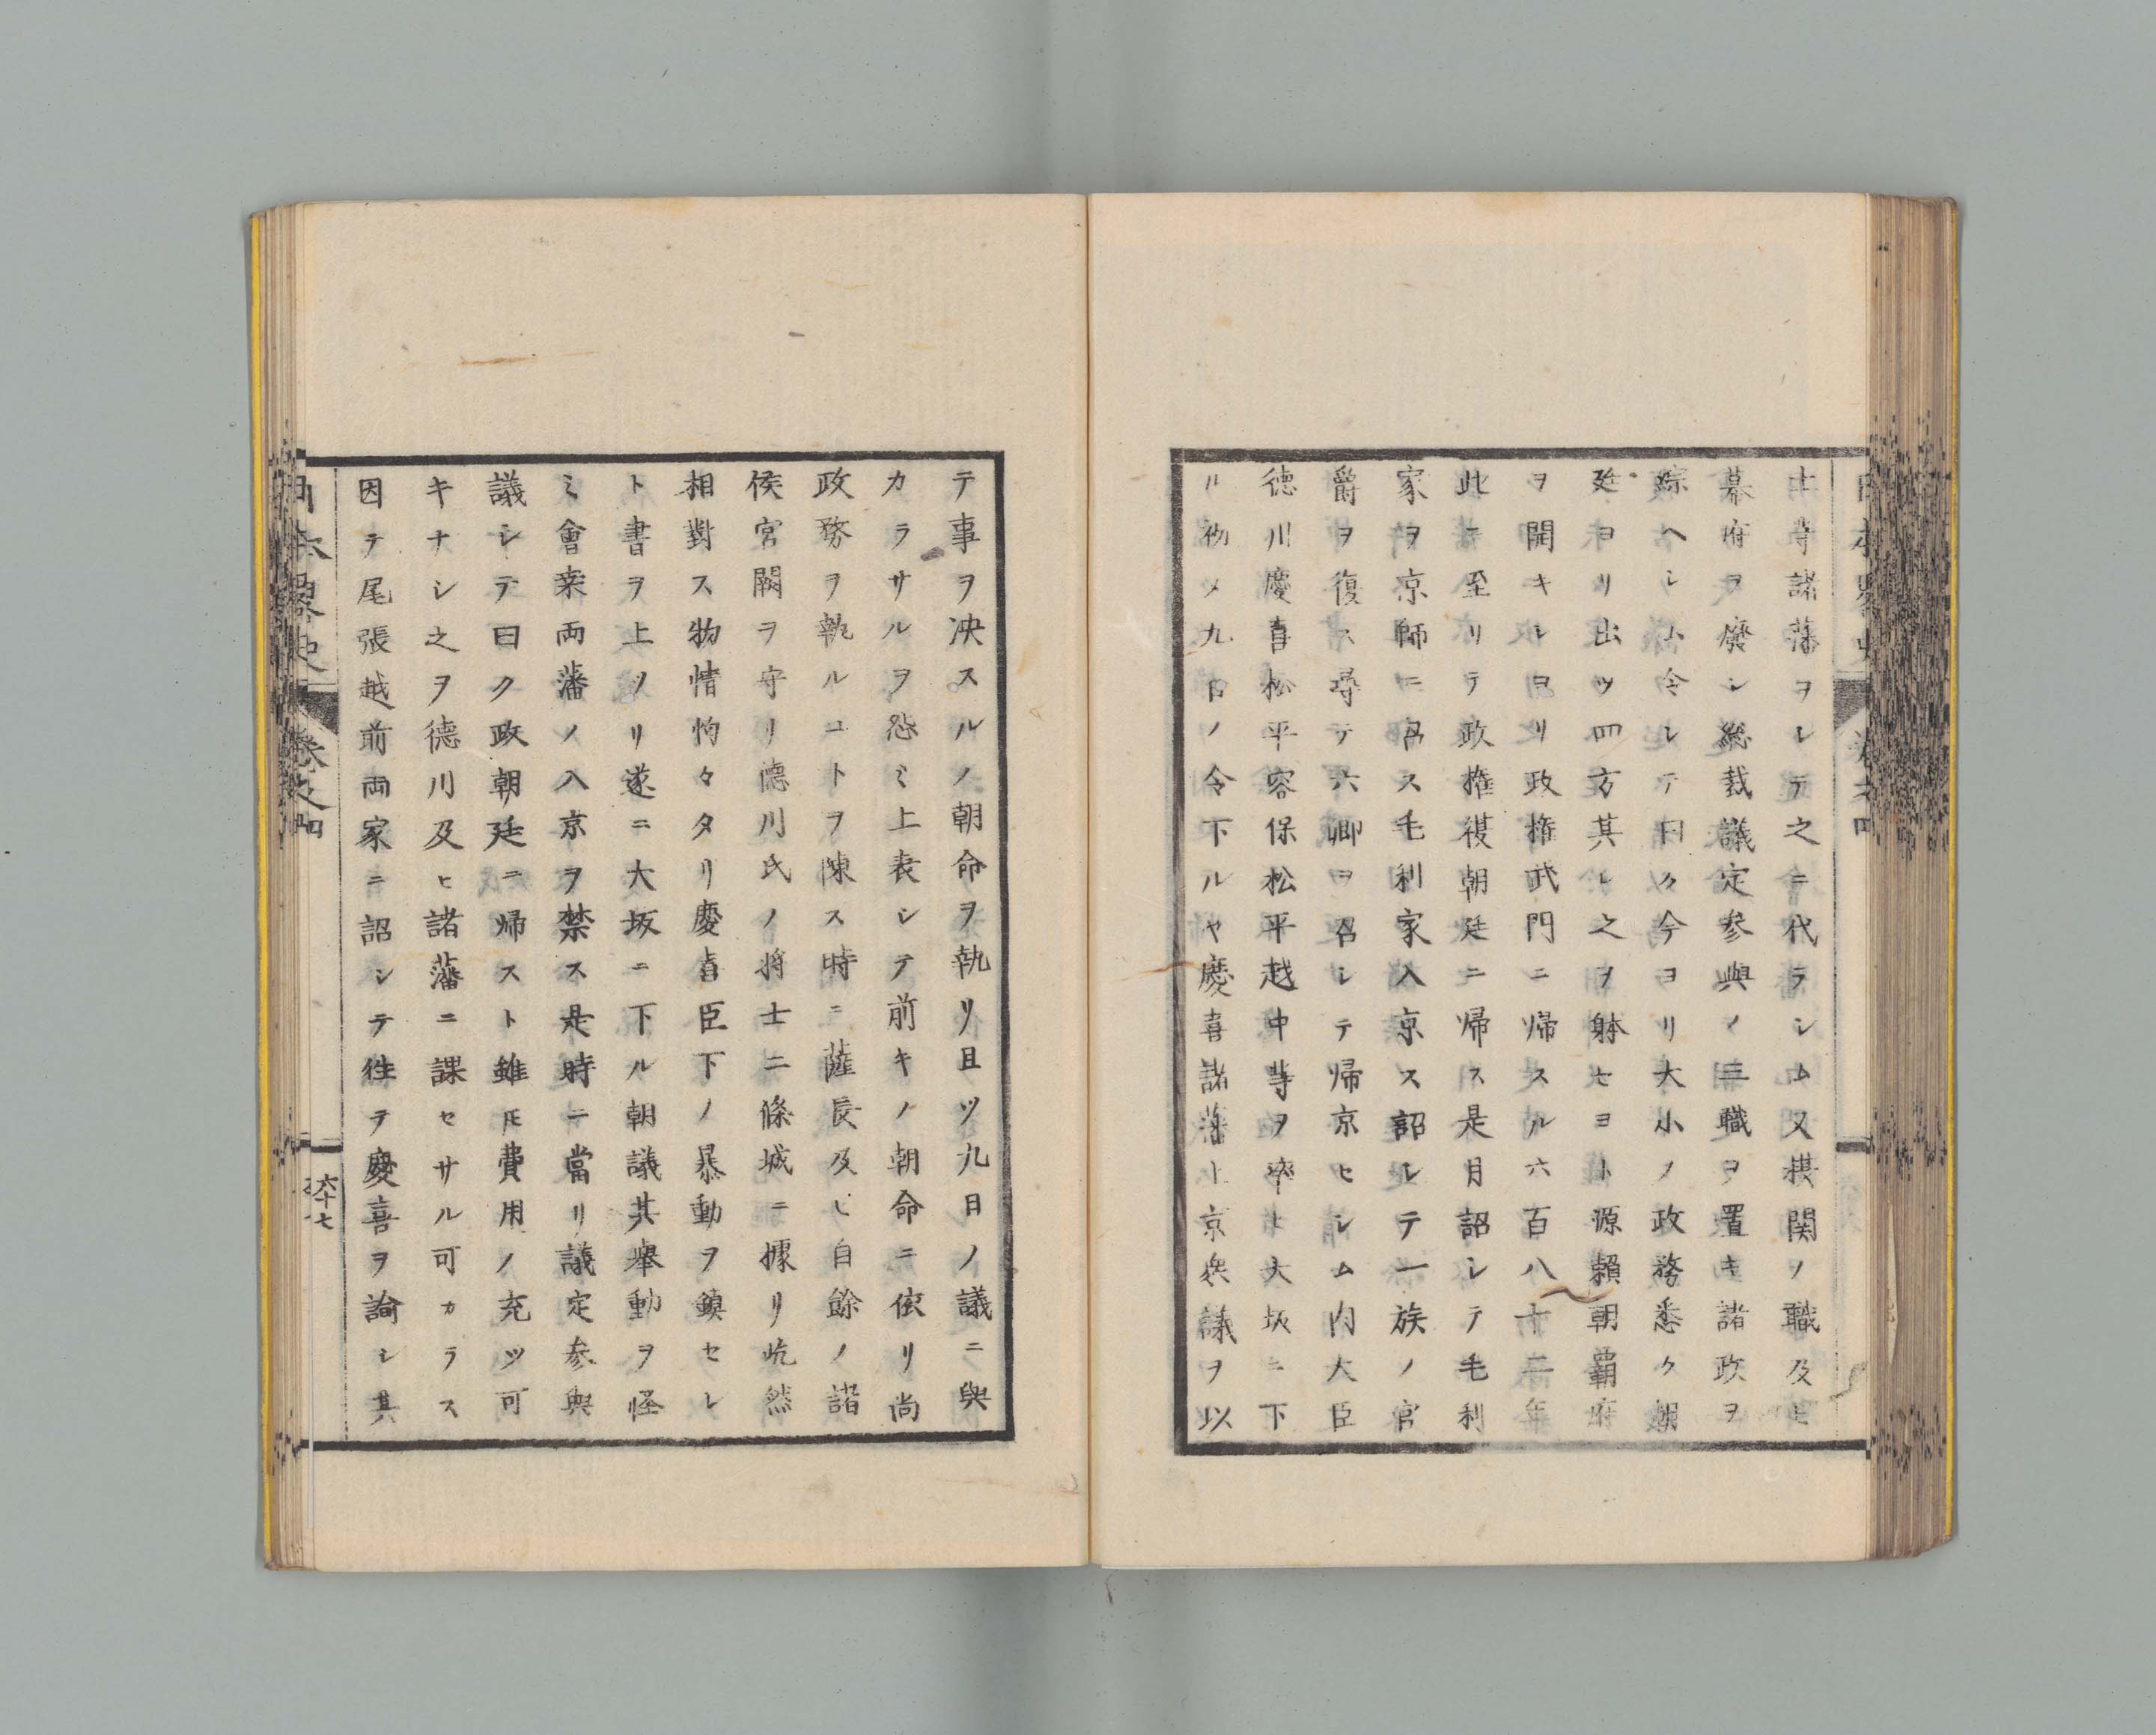 土等諸藩ヲシテ之ニ代ラシム又摂関ノ職及ヒ
幕府ヲ廃シ総裁議定参與ノ三職ヲ置キ諸政ヲ
綜ヘシム令シテ曰ク今ヨリ大小ノ政務悉ク朝
廷ヨリ出ツ四方其レ之ヲ躰セヨト源頼朝覇府
ヲ開キシヨリ政権武門ニ帰スル六百八十二年
此ニ至リテ政権復朝廷ニ帰ス是月詔シテ毛利
家ヲ京師ニ召ス毛利家入京ス詔シテ一族ノ官
爵ヲ復ス尋テ六卿ヲ召シテ帰京セシム内大臣
徳川慶喜松平容保松平越中等ヲ率ヒ大坂ニ下
ル初メ九日ノ令下ルヤ慶喜諸藩上京衆議ヲ以
テ事ヲ决スルノ朝命ヲ執リ且ツ九日ノ議ニ與
カラサルヲ怨ミ上表シテ前キノ朝命ニ依リ尚
政務ヲ執ルコトヲ陳ス時ニ薩長及ヒ自餘ノ諸
侯宮闕ヲ守リ徳川氏ノ将士二條城ニ據リ屹然
相對ス物情恟々タリ慶喜臣下ノ暴動ヲ鎮セレ
ト書ヲ上ツリ遂ニ大坂ニ下ル朝議其舉動ヲ怪
ミ會桒両藩ノ入京ヲ禁ス是時ニ當リ議定参與
議シテ曰ク政朝廷ニ帰スト雖𪜈費用ノ充ツ可
キナシ之ヲ徳川及ヒ諸藩ニ課セサル可カラス
因テ尾張越前両家ニ詔シテ徃テ慶喜ヲ諭シ其
日本畧史 巻之四
六十七